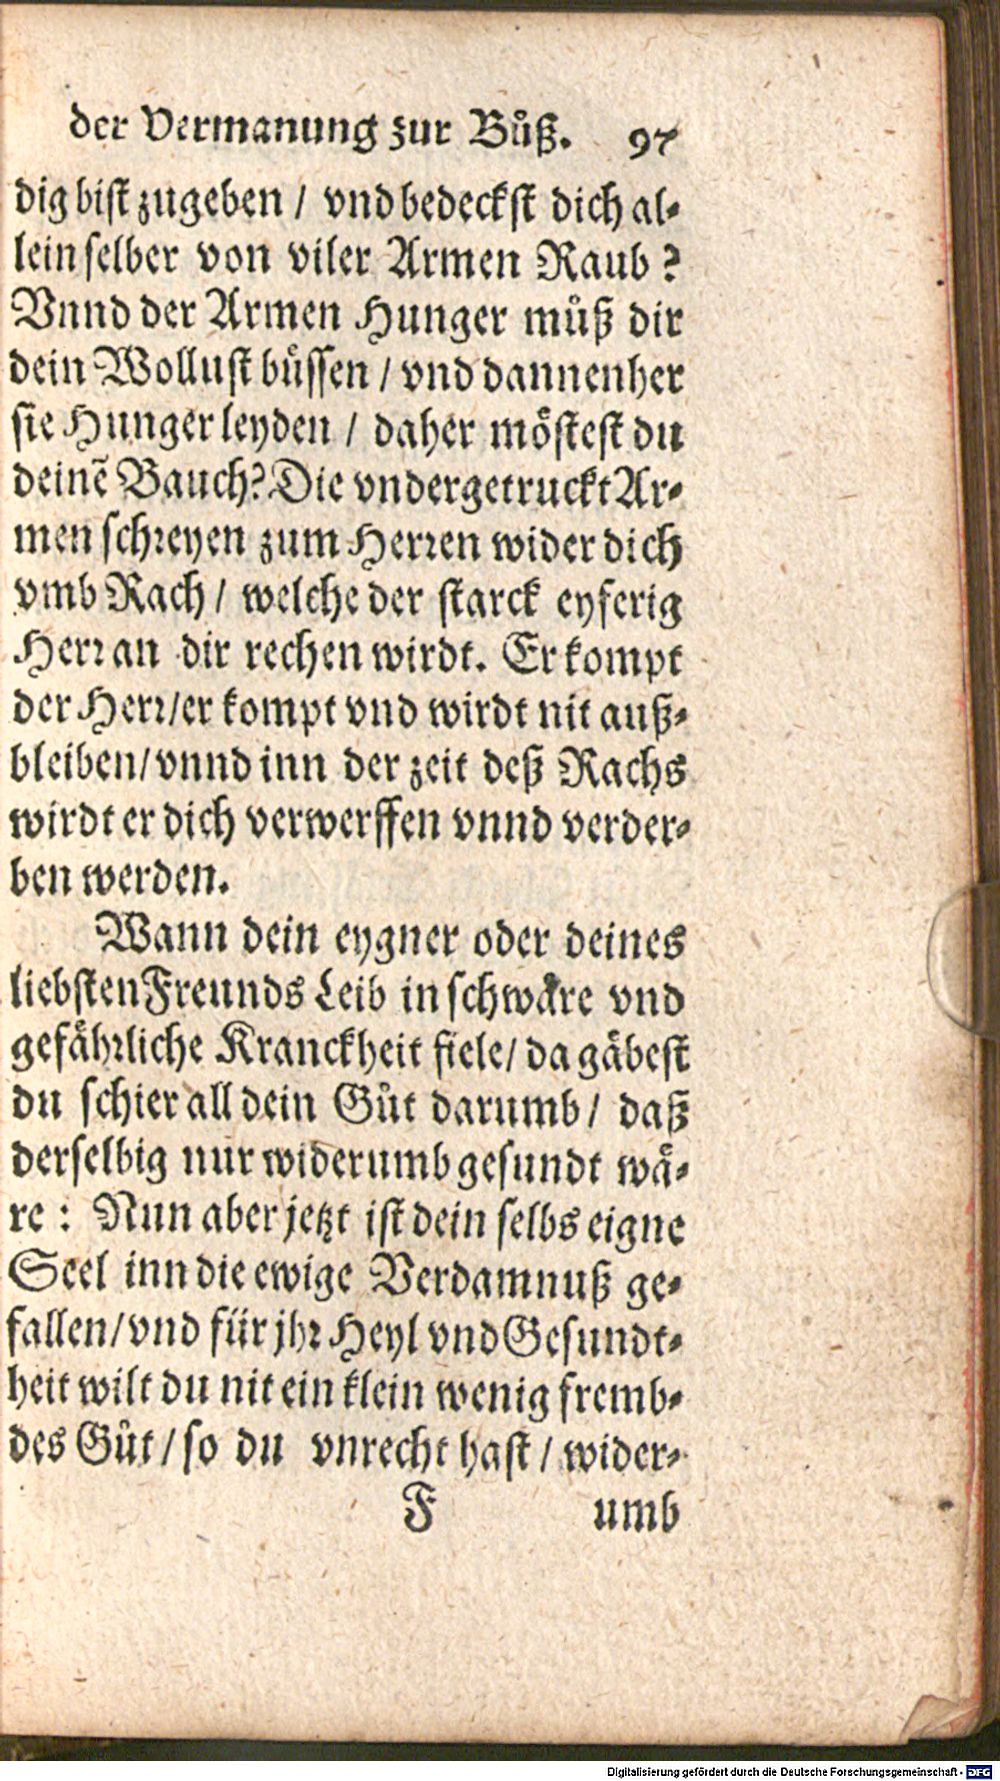 der Vermanung zur Bůß. 97
dig bist zugeben / vnd bedeckst dich al⸗
lein selber von viler Armen Raub?
Vnnd der Armen Hunger můß dir
dein Wollust büssen / vnd dannenher
sie Hunger leyden / daher möstest du
deinẽ Bauch? Die vndergetruckt Ar⸗
men schreyen zum Herren wider dich
vmb Rach / welche der starck eyferig
Herr an dir rechen wirdt. Er kompt
der Herr / er kompt vnd wirdt nit auß⸗
bleiben / vnnd inn der zeit deß Rachs
wirdt er dich verwerffen vnnd verder⸗
ben werden.
Wann dein eygner oder deines
liebsten Freunds Leib in schwäre vnd
gefährliche Kranckheit fiele / da gäbest
du schier all dein Gůt darumb / daß
derselbig nur widerumb gesundt wä⸗
re : Nun aber jetzt ist dein selbs eigne
Seel inn die ewige Verdamnuß ge⸗
fallen / vnd für jhr Heyl vnd Gesundt⸗
heit wilt du nit ein klein wenig fremb⸗
des Gůt / so du vnrecht hast / wider⸗
F umb
Digitalisierung gefördert durch die Deutsche Forschungsgemeinschaft - DFG